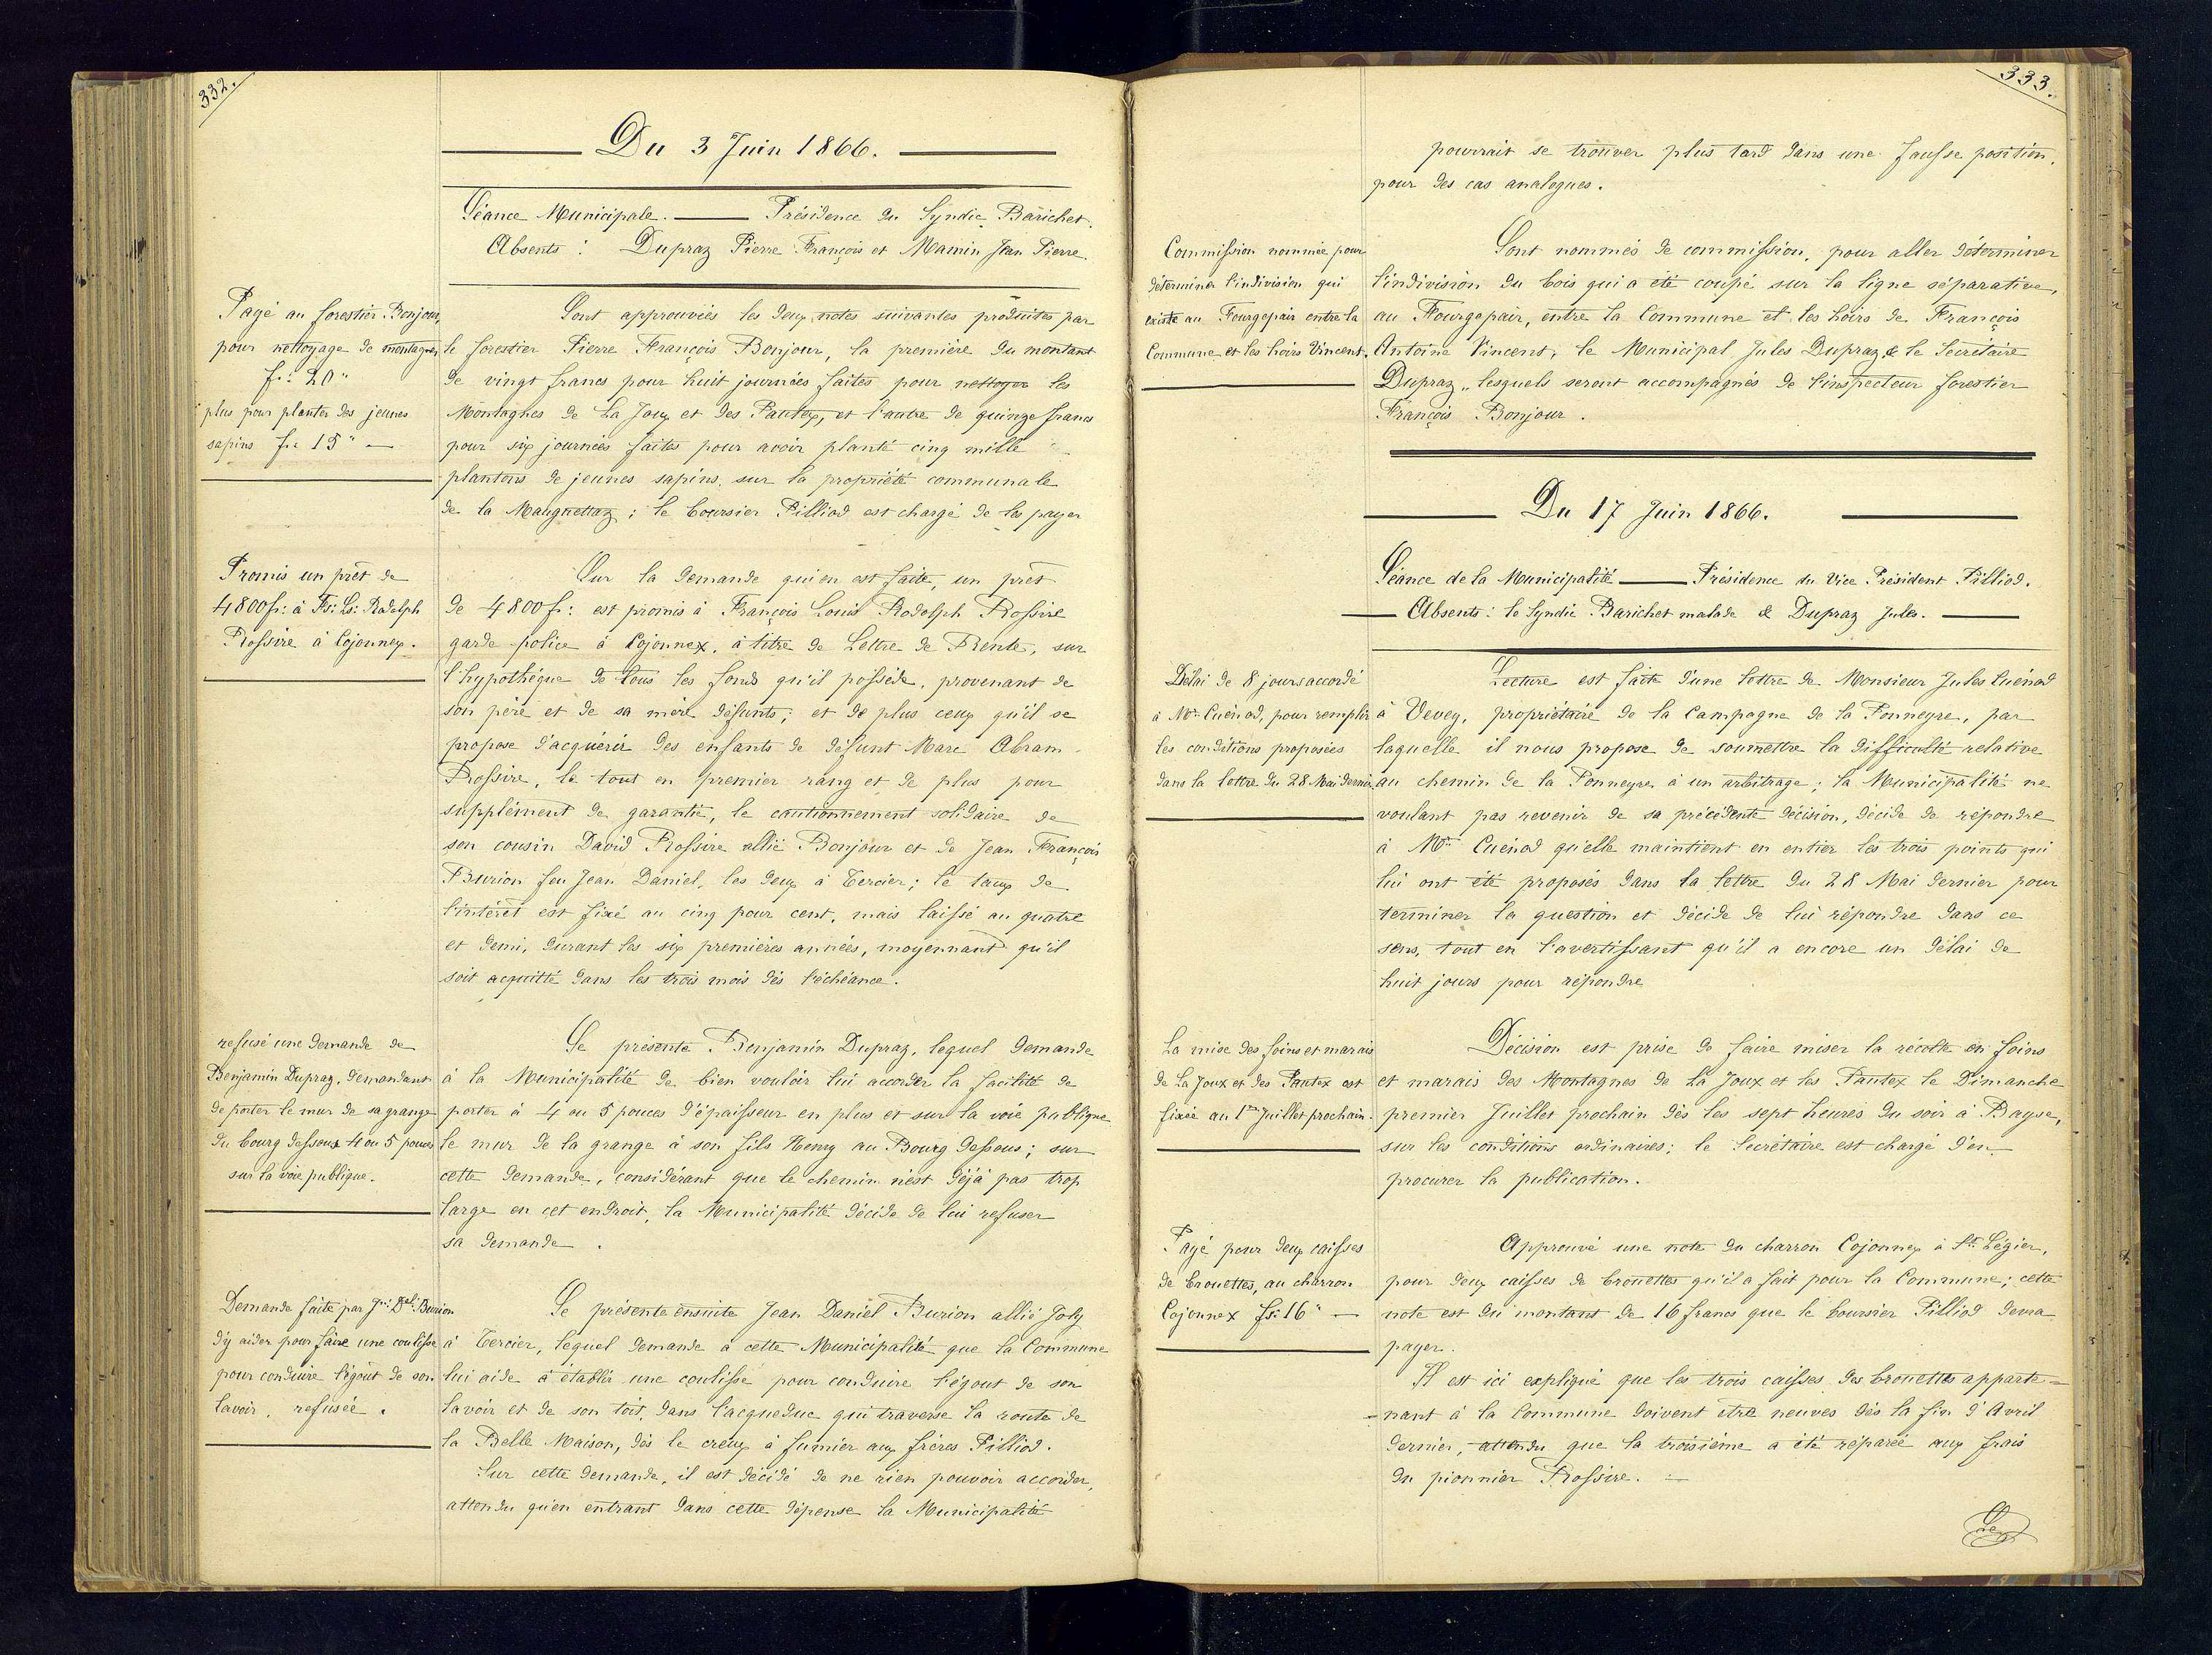 332.
Du 3 Juin 1866.
Séance Municipale. Présidence du Syndic Barichet.
Absents : Dupraz Pierre François et Mamin Jean Pierre.
Payé au forestier Bonjour,
pour nettoyage de montagnes
fr: 20"
plus pour planter des jeunes
sapins fr. 15" —
Sont approuvées les deux notes suivantes produites par
le forestier Pierre François Bonjour, la première du montant
de vingt francs pour huit journées faites pour nettoyer les
Montagnes de La Joux et des Pautex, et l'autre de quinze francs
pour six journées faites pour avoir planté cinq mille
plantons de jeunes sapins, sur la propriété communale
de la Malignettaz ; le boursier Pilliod est chargé de les payer
Promis un prêt de
4800 fr: à Fs: Ls: Rodolph
Rossire à Cojonnex.
Sur la demande qui en est faite, un prêt
de 4800 fr: est promis à François Louis Rodolph Rossire
garde police à Cojonnex, à titre de Lettre de Rente, sur
l'hypothèque de tous les fonds qu'il possède, provenant de
son père et de sa mère défunts; et de plus ceux qu'il se
propose d'acquérir des enfants de défunt Marc Abram
Rossire, le tout en premier rang et de plus pour
supplément de garantie, le cautionnement solidaire de
son cousin David Rossire allié Bonjour et de Jean François
Burion feu Jean Daniel, les deux à Tercier; le taux de
l'intérêt est fixé au cinq pour cent, mais laissé au quatre
et demi, durant les six premières années, moyennant qu'il
soit acquitté dans les trois mois dès l'échéance.
refusé une demande de
Benjamin Dupraz, demandant
de porter le mur de sa grange
du bourg dessous 4 ou 5 pouces
sur la voie publique.
Se présente Benjamin Dupraz, lequel demande
à la Municipalité de bien vouloir lui accorder la facilité de
porter à 4 ou 5 pouces d'épaisseur en plus et sur la voie publique
le mur de la grange à son fils Henry au Bourg dessous; sur
cette demande, considérant que le chemin n'est déjà pas trop
large en cet endroit, la Municipalité décide de lui refuser
sa demande .
Demande faite par Jn: Del: Burion
d'y aider pour faire une coulisse
pour conduire l'égout de son
lavoir, refusée .
Se présente ensuite Jean Daniel Burion allié Joly
à Tercier, lequel demande à cette Municipalité que la Commune
lui aide à établir une coulisse pour conduire l'égout de son
lavoir et de son toit, dans l'acqueduc qui traverse la route de
la Belle Maison, dès le creux à fumier aux frères Pilliod.
Sur cette demande, il est décidé de ne rien pouvoir accorder,
attendu qu'en entrant dans cette dépense la Municipalité
333.
pourrait se trouver plus tard dans une fausse position,
pour des cas analogues.
Commission nommée pour
déterminer l'indivision qui
existe au Fourgepair entre la
Commune et les hoirs Vincent.
Sont nommés de commission, pour aller déterminer
l'indivision du bois qui a été coupé sur la ligne séparative,
au Fourgepair, entre la Commune et les hoirs de François
Antoine Vincent, le Municipal Jules Dupraz & le Secrétaire
Dupraz, lesquels seront accompagnés de l'inspecteur forestier
François Bonjour.
Du 17 Juin 1866.
Séance de la Municipalité — Présidence du Vice Président Pilliod.
Absents: le Syndic Barichet malade & Dupraz Jules.
Délai de 8 jours accordé
à Mr. Cuénod, pour remplir
les conditions proposées
dans la lettre du 28 Mai dernier
Lecture est faite d'une lettre de Monsieur Jules Cuénod
à Vevey, propriétaire de la Campagne de la Ponneyre, par
laquelle il nous propose de soumettre la difficulté relative
au chemin de la Ponneyre à un arbitrage; la Municipalité ne
voulant pas revenir de sa précédente décision, décide de répondre
à Mr. Cuénod qu'elle maintient en entier les trois points qui
lui ont été proposés dans la lettre du 28 Mai dernier pour
terminer la question et décide de lui répondre dans ce
sens, tout en l'avertissant qu'il a encore un délai de
huit jours pour répondre
La mise des foins et marais
de La Joux et des Pautex est
fixée au 1er Juillet prochain.
Décision est prise de faire miser la récolte en foins
et marais des Montagnes de La Joux et les Pautex le Dimanche
premier Juillet prochain dès les sept heures du soir à Bayse,
sur les conditions ordinaires; le Secrétaire est chargé d'en
procurer la publication.
Payé pour deux caisses
de brouettes, au charron
Cojonnex fr: 16" —
Approuvé une note du charron Cojonnex à St. Légier,
pour deux caisses de brouettes qu'il a fait pour la Commune; cette
note est du montant de 16 francs que le boursier Pilliod devra
payer.
Il est ici expliqué que les trois caisses des brouettes apparte=
=nant à la Commune doivent être neuves dès la fin d'Avril
dernier, attendu que la troisième a été réparée aux frais
du pionnier Rossire. —